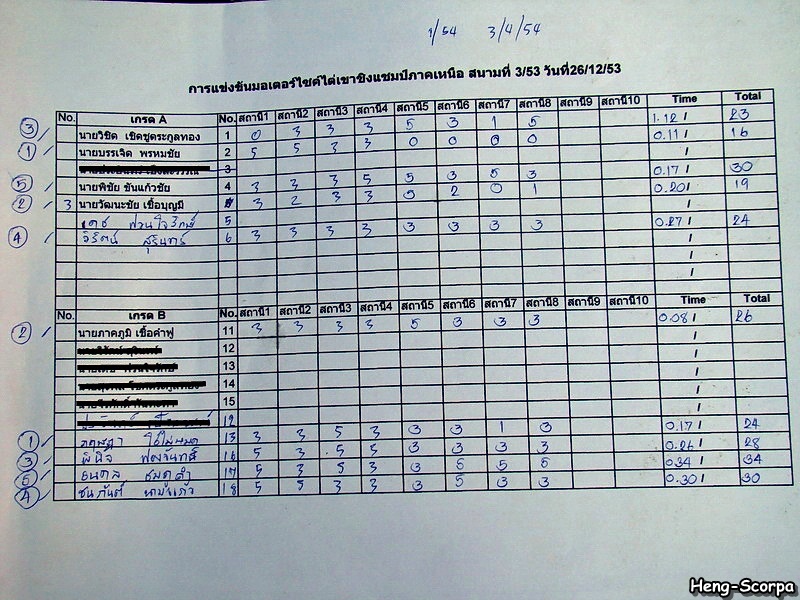 1/54 3/4/54
การแข่งขันมอเตอร์ไซค์ไต่เขาชิงแชมป์ภาคเหนือ สนามที่ 3/53 วันที่26/12/53
No. เกรด A No. สถานี1 สถานี2 สถานี3 สถานี4 สถานี5 สถานี6 สถานี7 สถานี8 สถานี9 สถานี10 Time Total
3 นายวิชิต เชิดชูตระกูลทอง 1 0 3 3 3 5 3 1 5 1.12 / 23
1 นายบรรเจิด พรหมชัย 2 5 5 3 3 0 0 0 0 0.11 / 16
3 /
5 นายพิชัย ขันแก้วชัย 4 3 3 3 5 5 3 5 3 0.17 / 30
2 3 นายวัฒนะชัย เชื้อบุญมี 3 2 3 3 5 2 0 1 0.20 / 19
5 /
4 6 3 3 3 3 3 3 3 3 0.27 / 24
/
/
No. เกรด B No. สถานี1 สถานี2 สถานี3 สถานี4 สถานี5 สถานี6 สถานี7 สถานี8 สถานี9 สถานี10 Time Total
2 นายภาคภูมิ เชื้อคำฟู 11 3 3 3 3 5 3 3 3 0.08 / 26
12 /
13 /
14 /
15 /
12 /
1 13 3 3 5 3 3 3 1 3 0.17 / 24
3 พินิจ 16 5 3 5 5 3 3 3 3 0.26 / 28
5 ธนดล 17 5 3 5 3 3 5 5 5 0.34 / 34
4 18 5 5 3 3 3 5 3 3 0.30 / 30
Heng-Scorpa